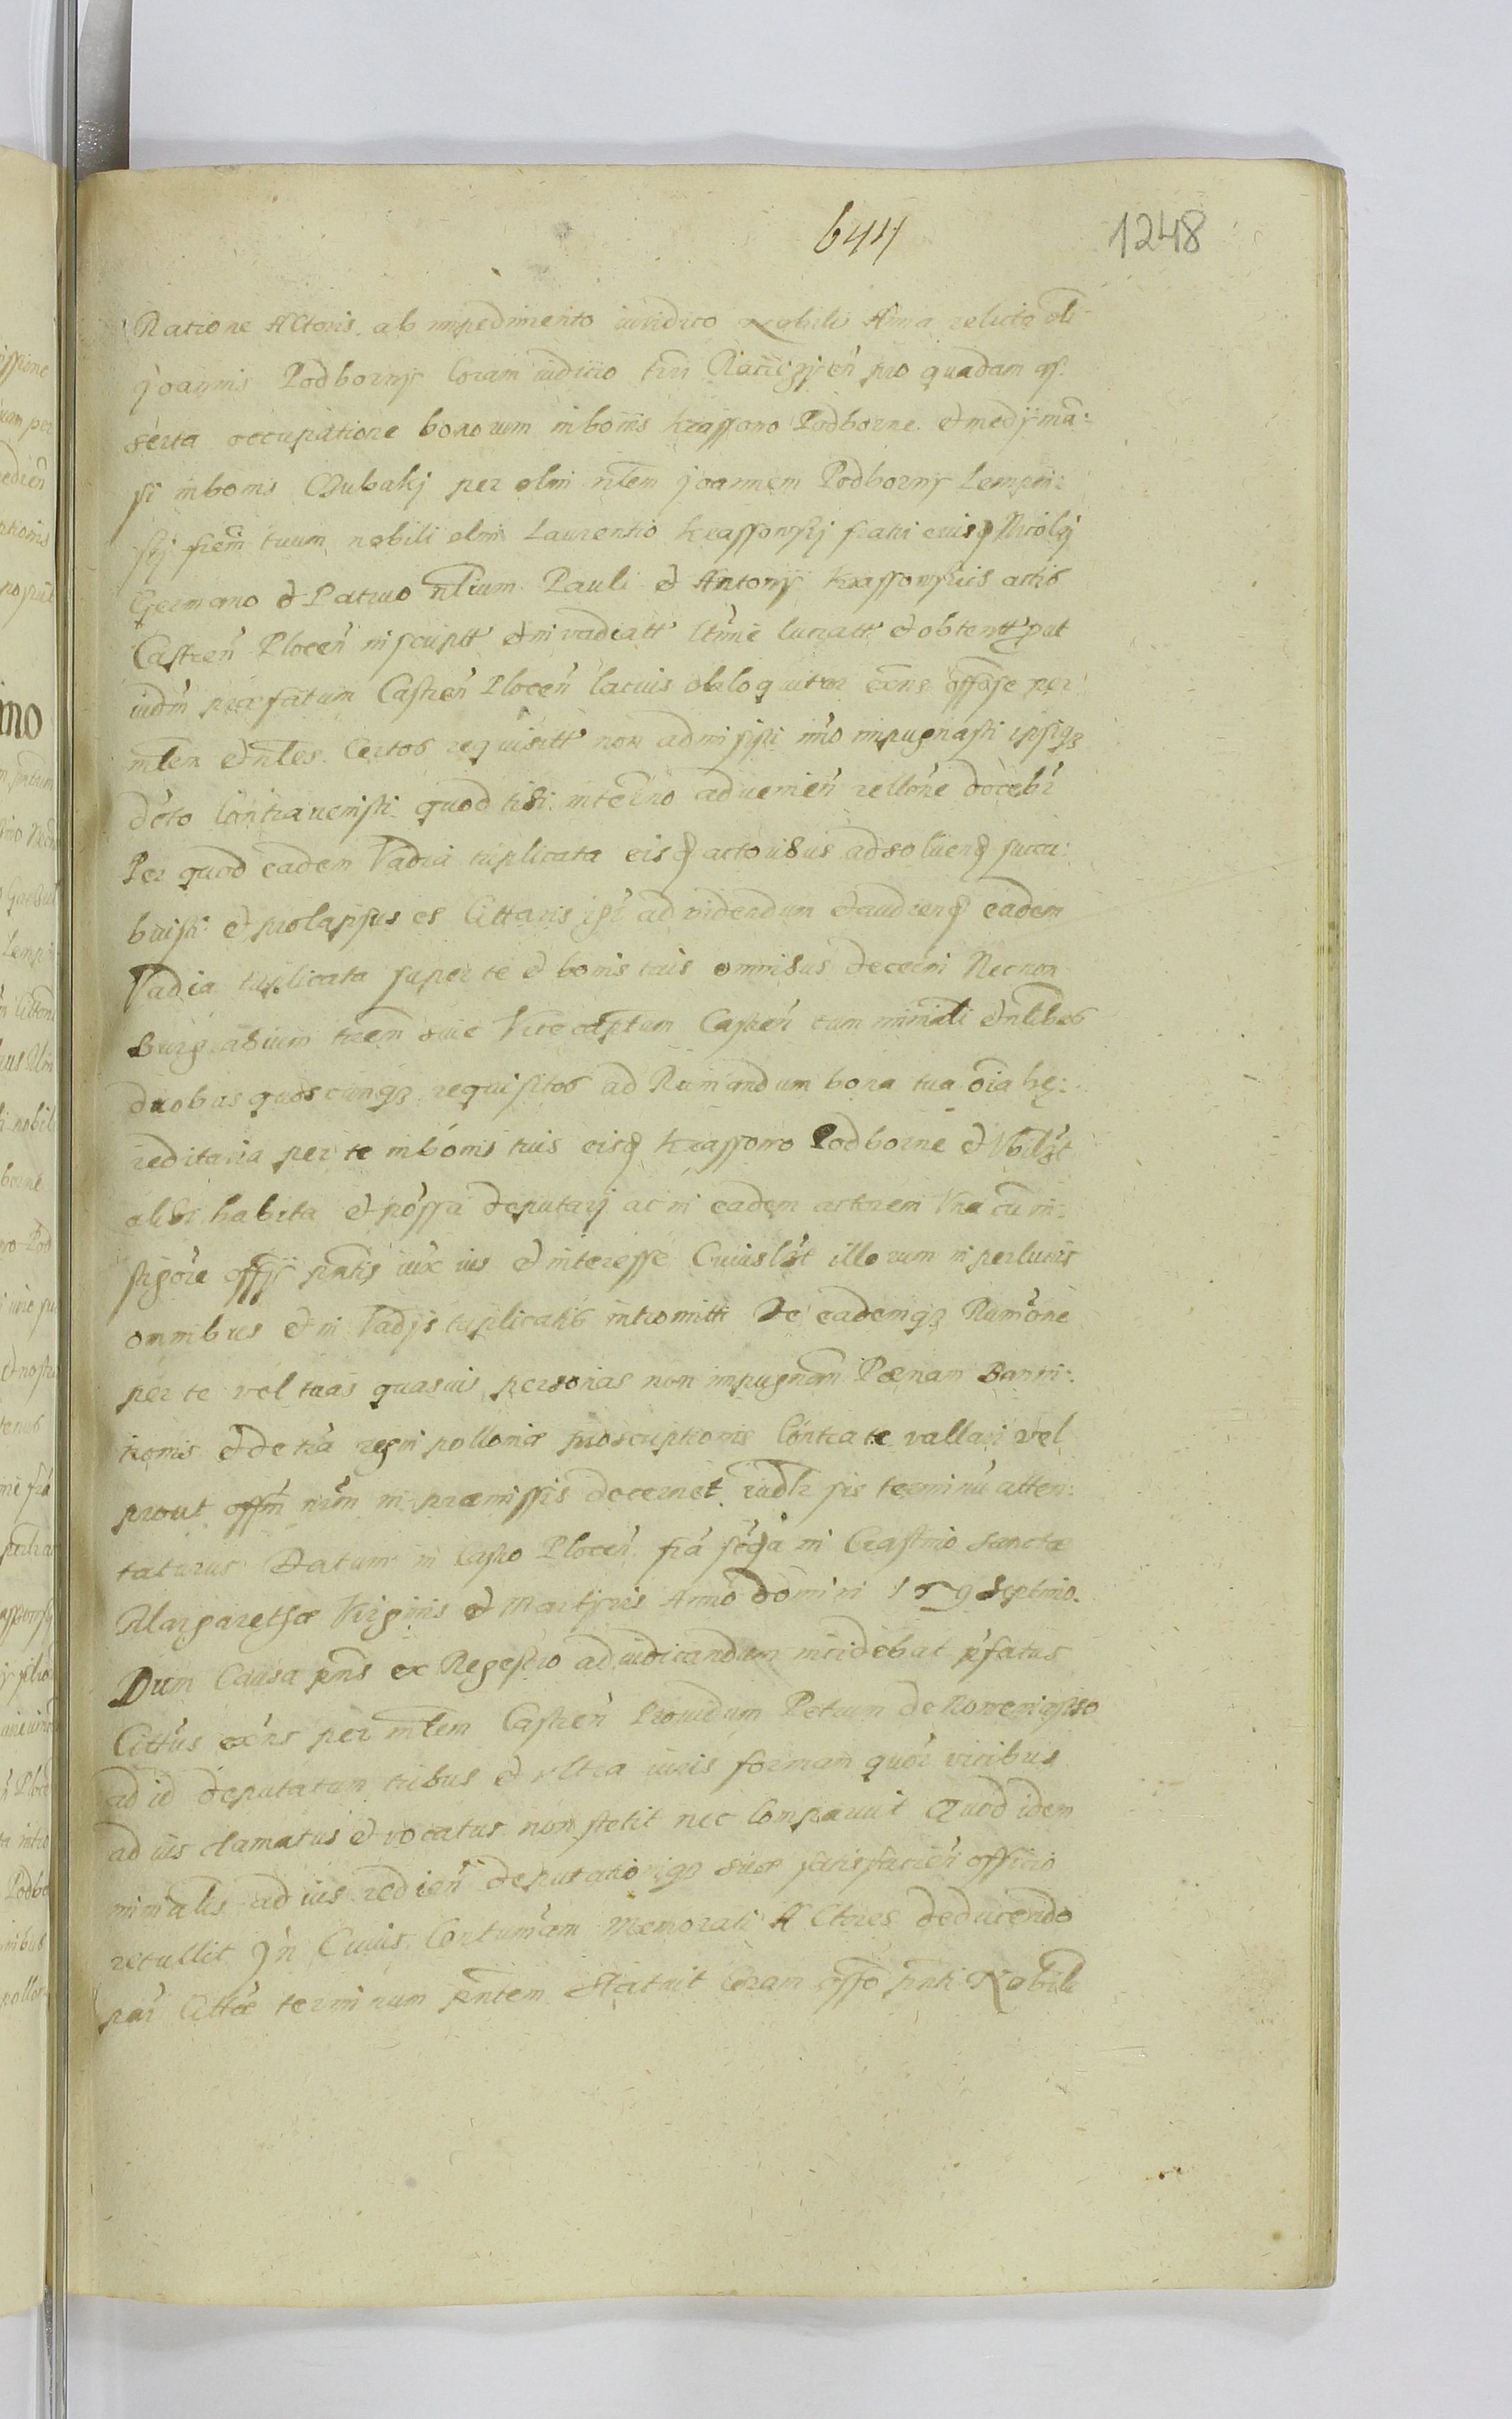 644 1248
Ratione Actoris ab impedimento iuridico Nobili Anna relicta oli-
Joannis Podborny Coram iudicio trri pro quadam as-
serta occupatione bonorum in bonis Krassowo Podborne et medij man-
si in bonis Chubakj per olim nlem Joannem Podborny Lempin-
skj frem tuum nobili olim Laurentio Krassowskj fratri eiusd Nicolaj
Germano et Patruo nlium Pauli et Antonij Krassowskiis actis
Castren Plocen inscriptt et invadiatt ltime lucratt et obtentt put
iudm praefatum Castren Plocen latius obloquitur exns offose per
mlem et nles Certos requisitt non admisisti imo impugnasti ipsiqz
dcto Contravenisti quod tibi in termno advenien rellone docebr
Per quod eadem Vadia triplicata eisd actoribus adsoluend succu-
buisti et prolapsus es Cittaris igr ad videndum et audiend eadem
Vadia triplicata super te et bonis tuis omnibus decerni Necnon
Burgrabium tren sive Vicecaptum Castren cum minali et nlibus
duobus quoscunqz requisitos ad Rumandum bona tua oia he-
reditaria per te in bonis tuis eisd Krassowo Podborne et Vbilbt
alibi habita et possa deputarj ac in eadem actorem Vna cum in-
stigore offij pntis iux ius et interesse Cuiuslbt illorum in perlucris
omnibus et in Vadijs triplicatis intromitti De eademqz Rumone
per te vel tuas quasuis personas non impugnam Poenam Banni-
tionis et de tra regni polloniae proscriptionis Contra te vallari vel
prout offm nrm in praemissis decernet iudr sis terminu atten-
taturus Datum in Castro Plocen fra scda in Crastino Sanctae
Margarethae Virginis et Martyris Anno domini 159 septimo.
Dum Causa pns ex Regestro ad iudicandum incidebat pfatus
Cittus exns per mlem Castren Providum Petrum de Nowemiasto
ad id deputatum tribus et ultra iuris formam quor vicibus
ad ius clamatus et vocatus non stetit nec Comparuit Quod idem
minialis ad ius redien deputationiqz suae satisfacien officio
retullit In Cuius Contumam Memorati Actores deducendo
par Cittae terminum pntem Statuit Coram offo pnti Nobili